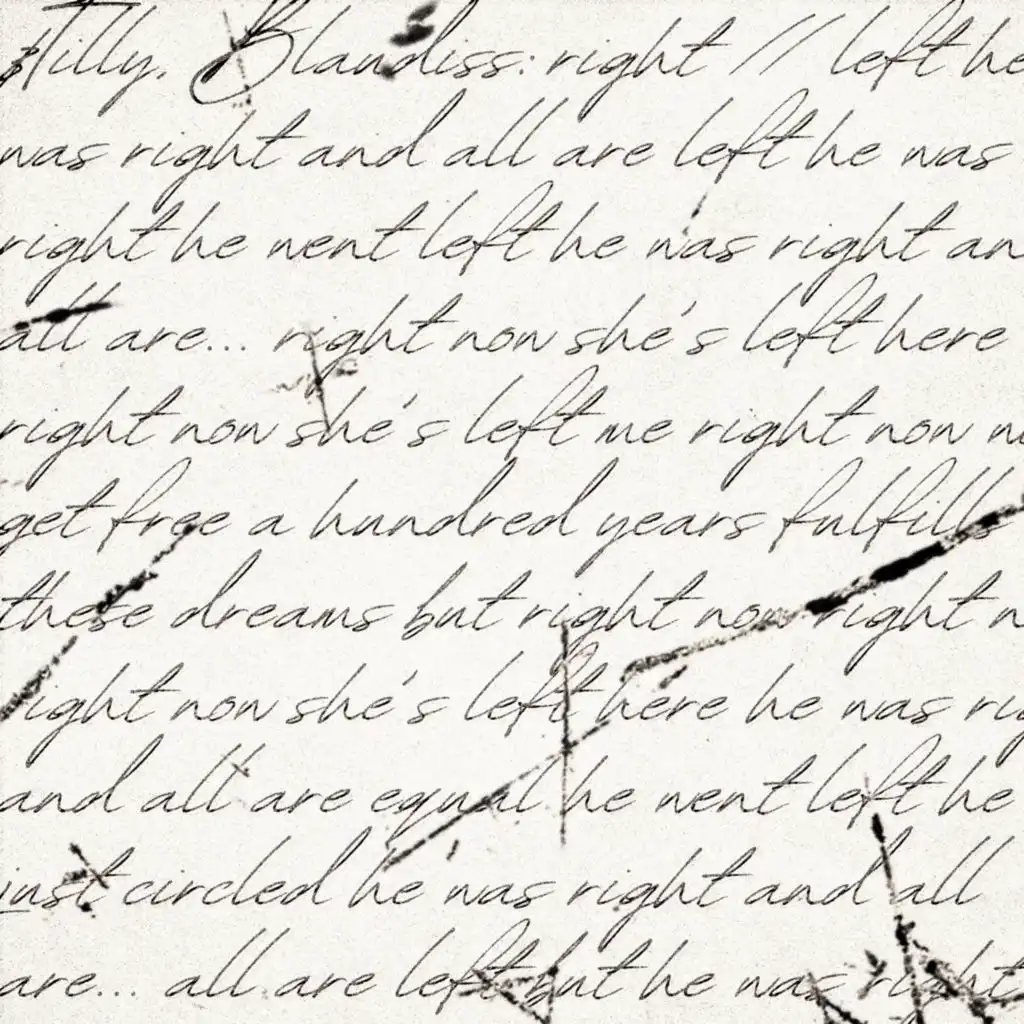 Tilly. Blaudiss: right // left he
was right and all are left he was
right he went left he was right an
all are... right now she's left here
right now she's left me right now
get free a hundred years fulfills
these dreams but right now right n
right now she's left here he was rig
and all are equal he went left he
just circled he was right and all
are... all are left but he was right